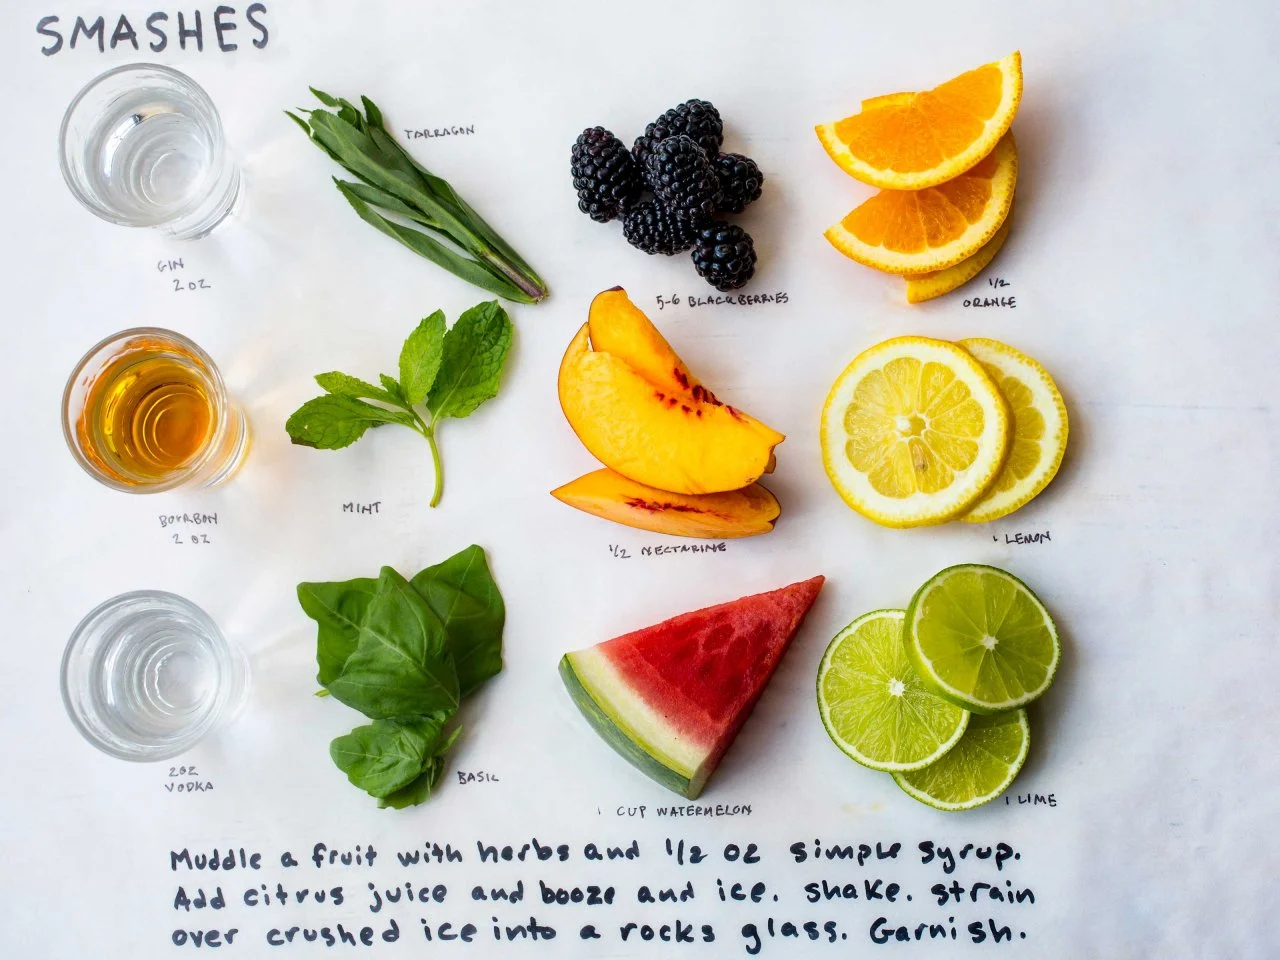 SMASHES
TARRAGON
GIN
2 OZ
5-6 BLACKBERRIES
1/2
ORANGE
BOURBON
2 OZ
MINT
1/2 NECTARINE
1 LEMON
2OZ
VODKA
BASIL
1 CUP WATERMELON
1 LIME
Muddle a fruit with herbs and 1/2 oz simple syrup.
Add citrus juice and booze and ice. shake. strain
over crushed ice into a rocks glass. Garnish.